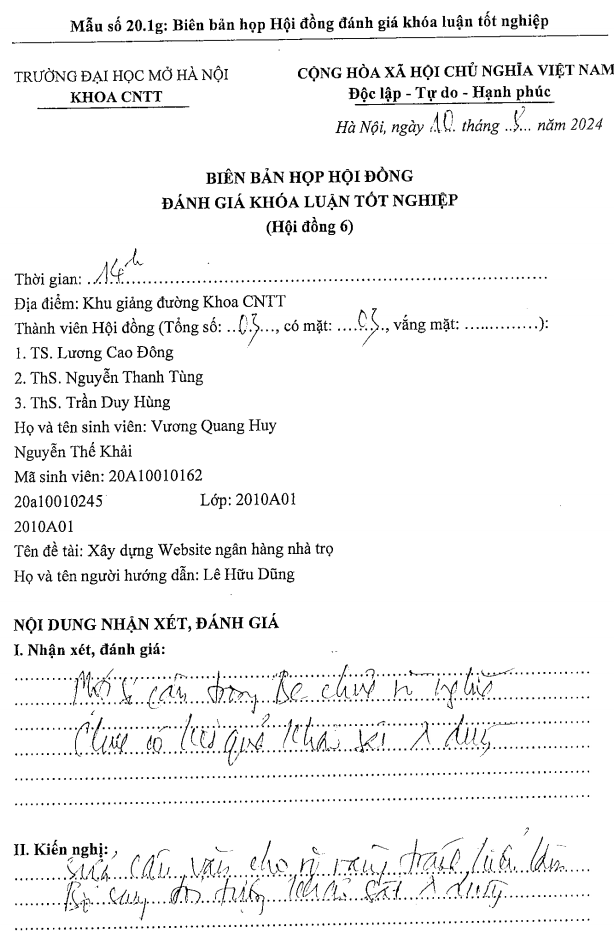 Mẫu số 20.1g: Biên bản họp Hội đồng đánh giá khóa luận tốt nghiệp
TRƯỜNG ĐẠI HỌC MỞ HÀ NỘI
KHOA CNTT
CỘNG HÒA XÃ HỘI CHỦ NGHĨA VIỆT NAM
Độc lập - Tự do - Hạnh phúc
Hà Nội, ngày 10 tháng 8 năm 2024
BIÊN BẢN HỌP HỘI ĐỒNG
ĐÁNH GIÁ KHÓA LUẬN TỐT NGHIỆP
(Hội đồng 6)
Thời gian: 14h
Địa điểm: Khu giảng đường Khoa CNTT
Thành viên Hội đồng (Tổng số: 03, có mặt: 03, vắng mặt: ):
1. TS. Lương Cao Đông
2. ThS. Nguyễn Thanh Tùng
3. ThS. Trần Duy Hùng
Họ và tên sinh viên: Vương Quang Huy
Nguyễn Thế Khải
Mã sinh viên: 20A10010162
20a10010245 Lớp: 2010A01
2010A01
Tên đề tài: Xây dựng Website ngân hàng nhà trọ
Họ và tên người hướng dẫn: Lê Hữu Dũng
NỘI DUNG NHẬN XÉT, ĐÁNH GIÁ
I. Nhận xét, đánh giá:
Một số câu trong BC chưa rõ nghĩa
Chưa có kết quả khảo sát
II. Kiến nghị:
sửa câu văn cho rõ ràng tránh
Bổ sung khảo sát